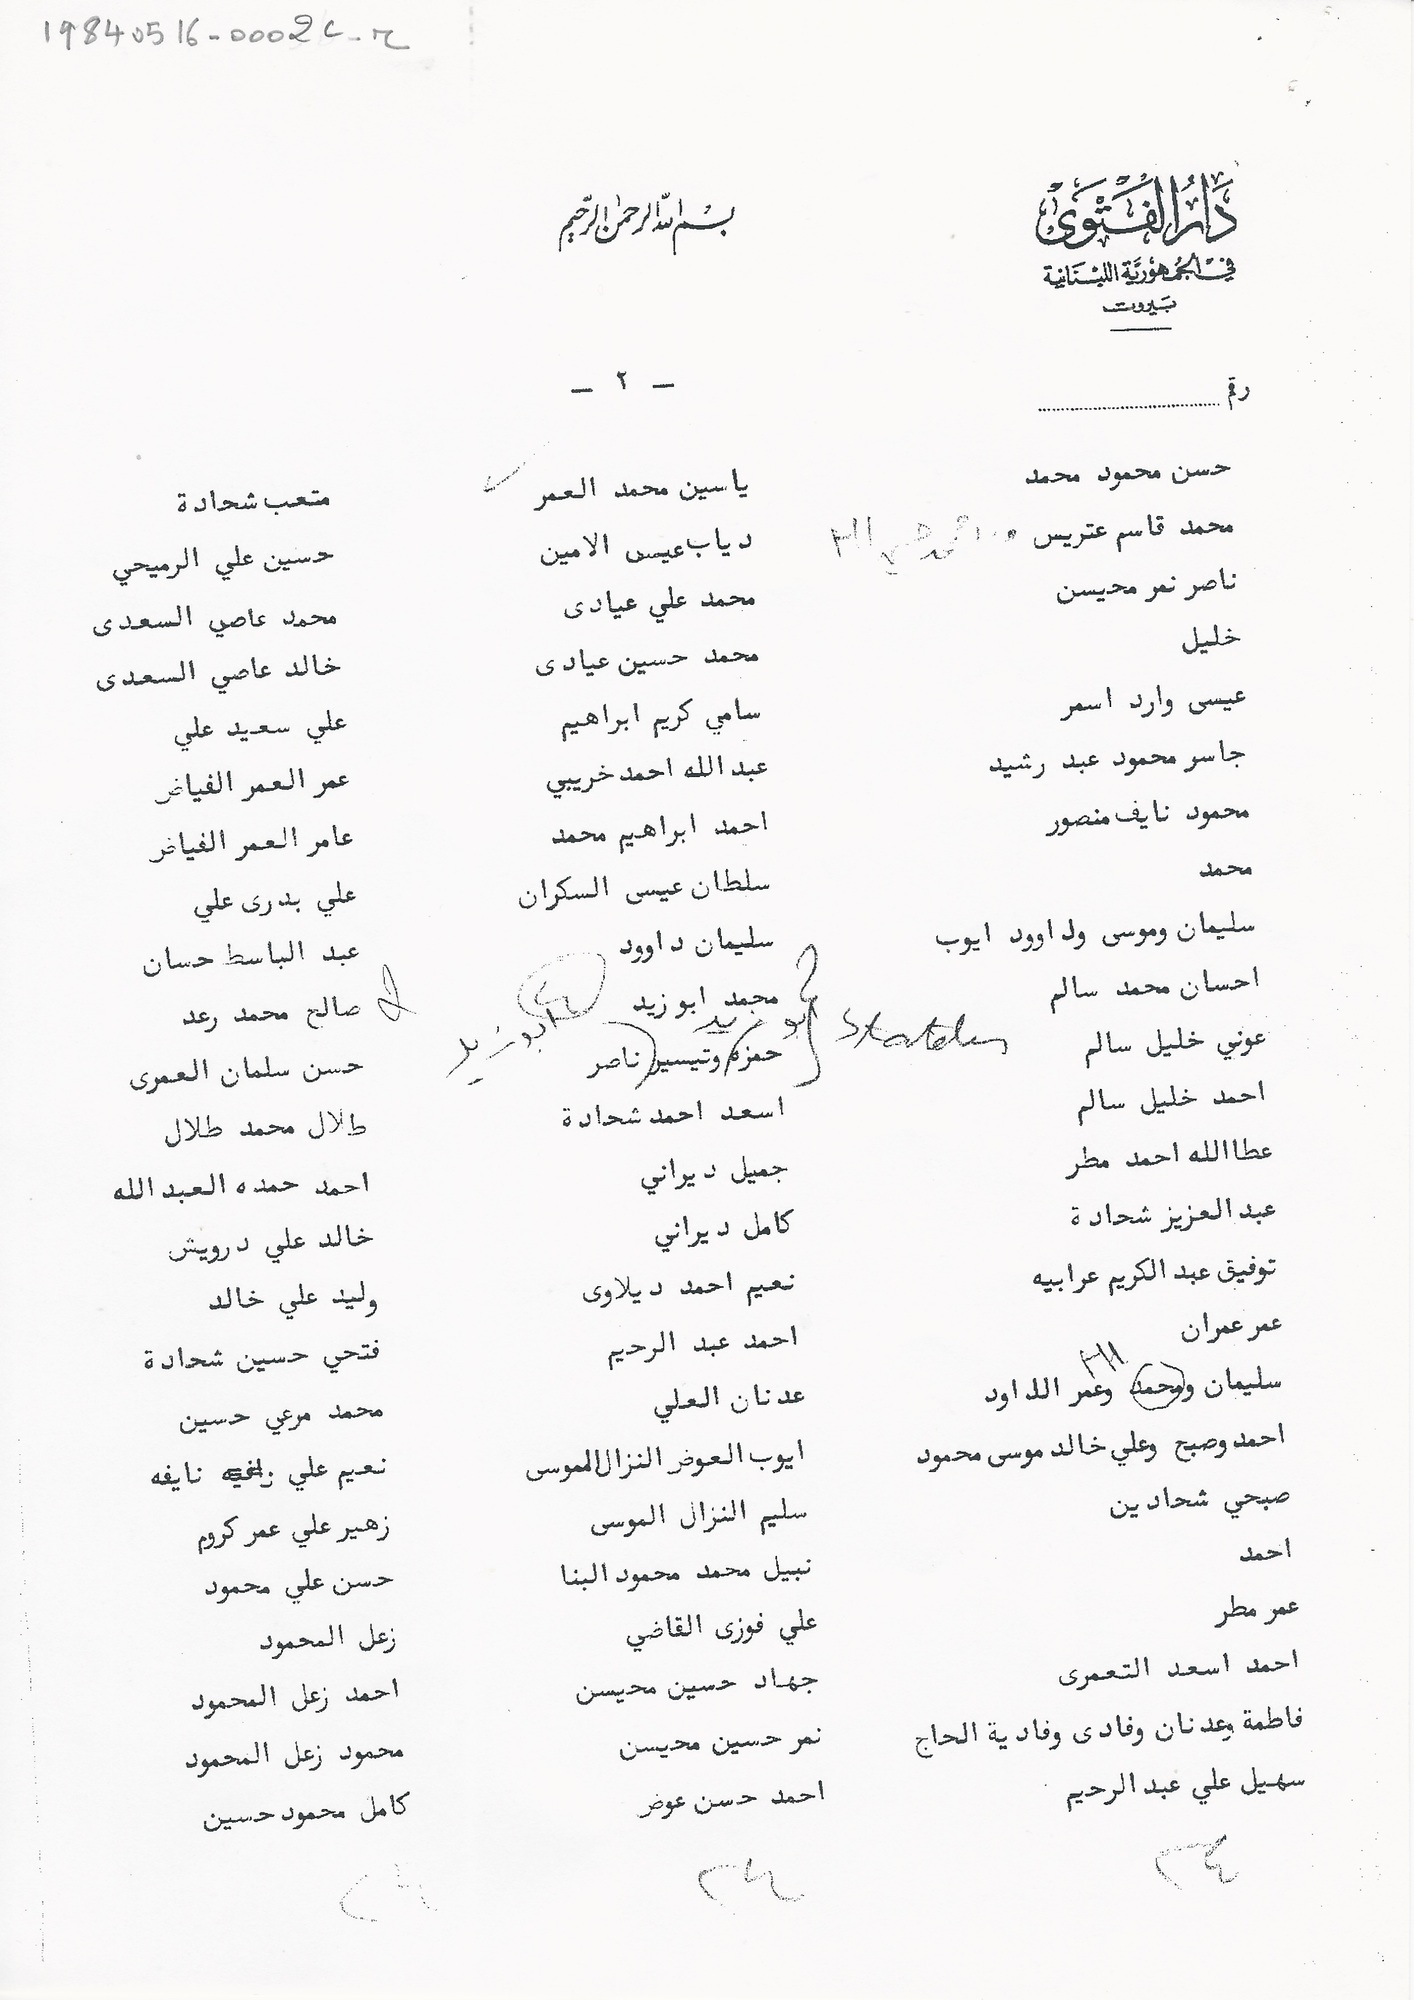 19840516-0002
دار الفتوى
في الجمهورية اللبنانية
بيروت
بسم الله الرحمن الرحيم
رقم
- ٢ -
حسن محمود محمد
محمد قاسم عتريس
ناصر نمر محيسن
خليل
عيسى وارد اسمر
جاسر محمود عبد رشيد
محمود نايف منصور
محمد
سليمان وموسى وداوود ايوب
احسان محمد سالم
عوني خليل سالم
احمد خليل سالم
عطاالله احمد مطر
عبد العزيز شحادة
توفيق عبد الكريم عرابيه
عمر عمران
سليمان ومحمد وعمر الداود
احمد وصبح وعلي خالد موسى محمود
صبحي شحادين
احمد
عمر مطر
احمد اسعد التعمرى
فاطمة وعدنان وفادى وفادية الحاج
سهيل علي عبد الرحيم
ياسين محمد العمر
دياب عيسى الامين
محمد علي عيادى
محمد حسين عيادى
سامي كريم ابراهيم
عبد الله احمد خريبي
احمد ابراهيم محمد
سلطان عيسى السكران
سليمان داوود
محمد ابو زيد
ابو زيد
حمزه وتيسير ناصر
ابو زيد
اسعد احمد شحادة
جميل ديراني
كامل ديراني
نعيم احمد ديلاوى
احمد عبد الرحيم
عدنان العلي
ايوب العوض النزال الموسى
سليم النزال الموسى
نبيل محمد محمود البنا
علي فوزى القاضي
جهاد حسين محيسن
نمر حسين محيسن
احمد حسن عوض
متعب شحادة
حسين علي الرميحي
محمد عاصي السعدى
خالد عاصي السعدى
علي سعيد علي
عمر العمر الفياض
عامر العمر الفياض
علي بدرى علي
عبد الباسط حسان
صالح محمد رعد
حسن سلمان العمرى
طلال محمد طلال
احمد حمده العبد الله
خالد علي درويش
وليد علي خالد
فتحي حسين شحادة
محمد مرعي حسين
نعيم علي نايفه
زهير علي عمر كروم
حسن علي محمود
زعل المحمود
احمد زعل المحمود
محمود زعل المحمود
كامل محمود حسين